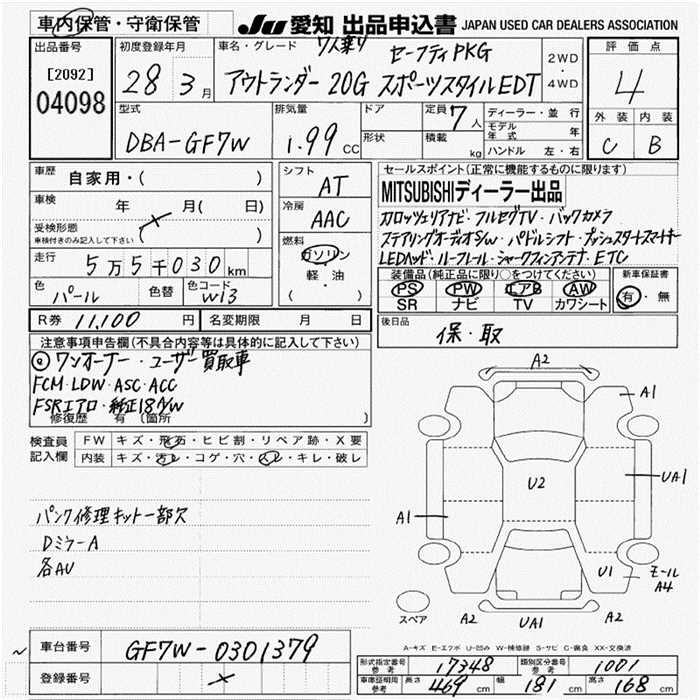 車内保管・守衛保管 JU 愛知 出品申込書 JAPAN USED CAR DEALERS ASSOCIATION
出品番号 [2092] 04098
初度登録年月 28 3月
車名・グレード 7人乗り セーフティPKG
アウトランダー 20G スポーツスタイルEDT
2WD・4WD
評価点 4
外装 内装
C B
型式 DBA-GF7W
排気量 1.99 CC
ドア
形状
定員 7人
積載 kg
ディーラー・並行
モデル年式 年
ハンドル 左・右
車歴 自家用・( )
車検 年 月( 日)
受検形態 ( )
車検付きのみ記入して下さい
走行 5万5千030km
色 パール 色替 色コード W13
シフト AT
冷房 AAC
燃料 ガソリン
軽・油
( )
セールスポイント(正常に機能するものに限ります)
MITSUBISHIディーラー出品
カロッツェリアナビ・フルセグTV・バックカメラ
ステアリングオーディオS/W・パドルシフト・プッシュスタートスマートキー
LEDヘッド・ルーフレール・シャークフィンアンテナ・ETC
装備品(純正品に限り○をつけてください) 新車保証書
PS PW エアB AW 有・無
SR ナビ TV カワシート
R券 11,100円 名変期限 月 日
後日品 保・取
注意事項申告欄(不具合内容等は具体的に記入して下さい)
◎ワンオーナー・ユーザー買取車
FCM・LDW・ASC・ACC
FSRエアロ・純正18A/W
修復歴 有(箇所 )
検査員記入欄
FW キズ・飛石・ヒビ割・リペア跡・X要
内装 キズ・汚レ・コゲ・穴・スレ・キレ・破レ
パンク修理キット一部欠
Dミラー A
各AU
A2
A1
U2
UA1
A1
U1
モール A4
スペア
A2 UA1 A2
A-キズ E-エクボ U-凹み W-補修跡 S-サビ C-腐食 XX-交換済
車台番号 GF7W-0301379
登録番号
形式指定番号 参考 17348 類別区分番号 参考 1001
車庫証明用 参考 長さ 469 cm 幅 181 cm 高さ 168 cm